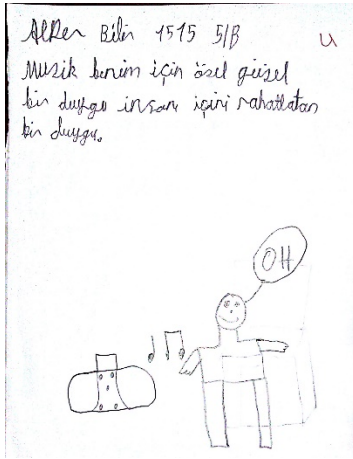 Alper Bilir 1515 5/B
u
Musik benim için ösel güsel
bir duygu insanı içini rahatlatan
bir duygu.
OH